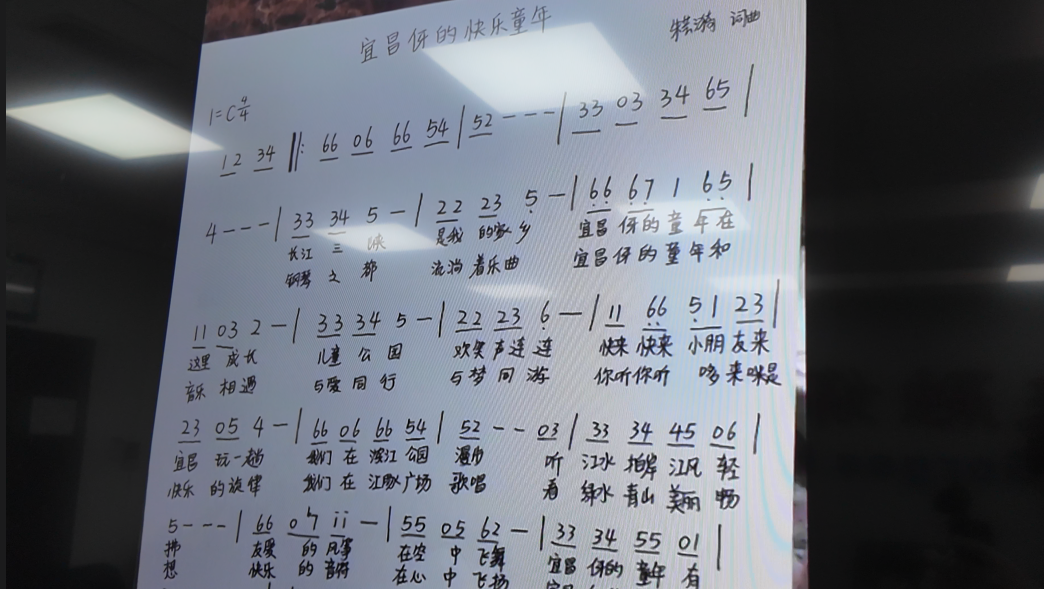 宜昌伢的快乐童年
词曲
1=C 4/4
12 34 ‖: 66 06 66 54 | 52 - - - | 33 03 34 65 |
4 - - - | 33 34 5 - | 22 23 5 - | 66 67 1 65 |
长江 三 峡 是我 的家 乡 宜昌 伢的 童 年在
钢琴 之 都 流淌 着乐 曲 宜昌 伢的 童 年和
11 03 2 - | 33 34 5 - | 22 23 6 - | 11 66 51 23 |
这里 成长 儿童 公 园 欢笑 声连 连 快来 快来 小朋 友来
音乐 相遇 与爱 同 行 与梦 同 游 你听 你听 哆 来咪是
23 05 4 - | 66 06 66 54 | 52 - - 03 | 33 34 45 06 |
宜昌 玩一趟 我们 在 滨江 公园 漫步 听 江水 拍岸 江风 轻
快乐 的旋律 我们 在 江豚 广场 歌唱 看 绿水 青山 美丽 畅
5 - - - | 66 07 ii - | 55 05 62 - | 33 34 55 01 |
拂 友爱 的 风筝 在空 中 飞舞 宜昌 伢的 童年 有
想 快乐 的 音符 在心 中 飞扬 宜昌